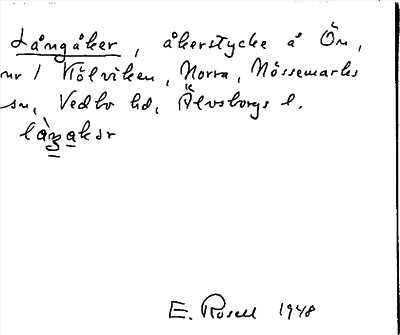 Långåker, åkerstycke å Ön,
nr 1 Kölviken, Norra, Nössemarks
sn, Vedbo hd, Älvsborgs l.
E. Rosell 1948